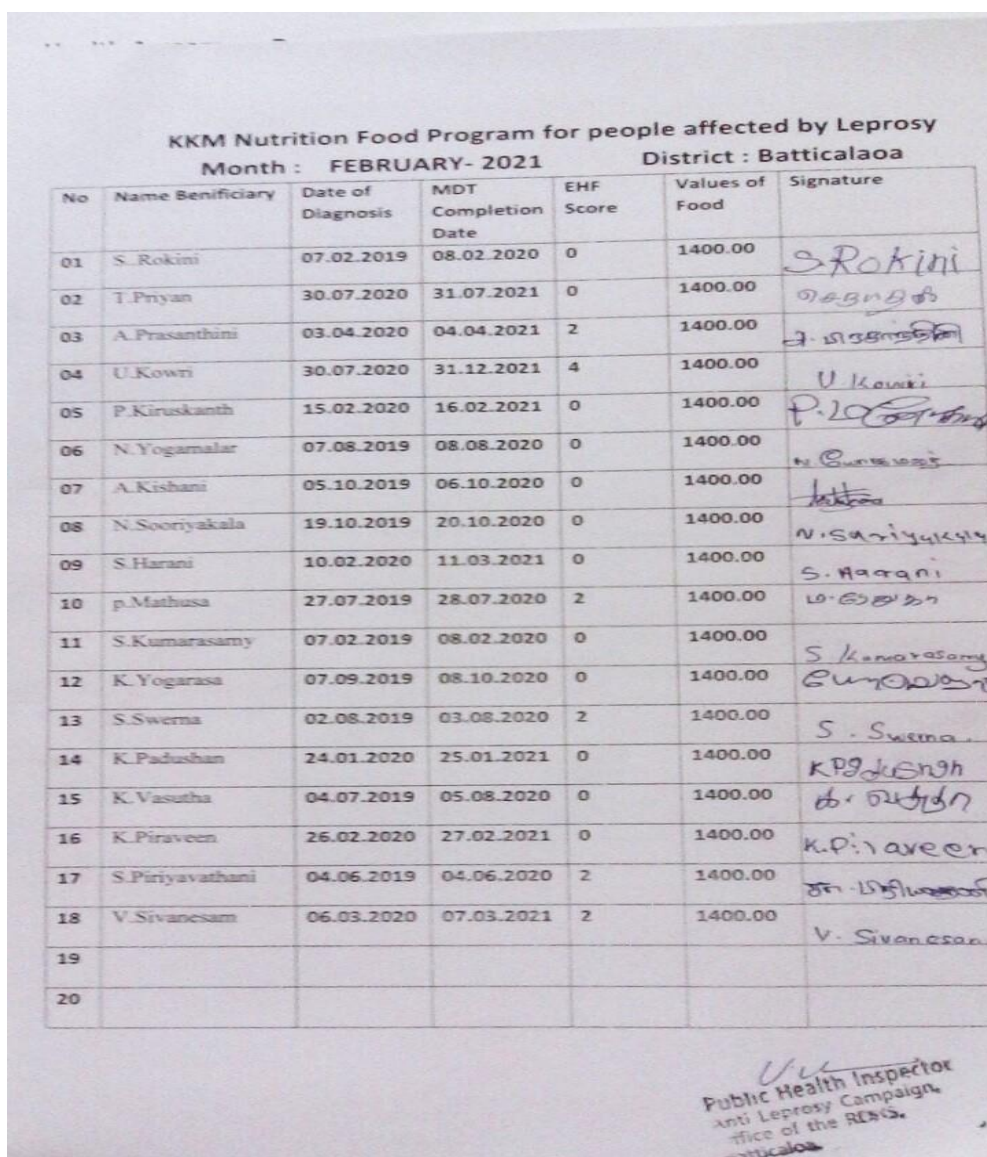 KKM Nutrition Food Program for people affected by Leprosy
Month : FEBRUARY- 2021 District : Batticalaoa
No Name Benificiary Date of Diagnosis MDT Completion Date EHF Score Values of Food Signature
01 S.Rokini 07.02.2019 08.02.2020 0 1400.00 S.Rokini
02 T.Priyan 30.07.2020 31.07.2021 0 1400.00
03 A.Prasanthini 03.04.2020 04.04.2021 2 1400.00
04 U.Kowri 30.07.2020 31.12.2021 4 1400.00 U.Kowri
05 P.Kiruskanth 15.02.2020 16.02.2021 0 1400.00
06 N.Yogamalar 07.08.2019 08.08.2020 0 1400.00
07 A.Kishani 05.10.2019 06.10.2020 0 1400.00
08 N.Sooriyakala 19.10.2019 20.10.2020 0 1400.00
09 S.Harani 10.02.2020 11.03.2021 0 1400.00 S.Haarani
10 p.Mathusa 27.07.2019 28.07.2020 2 1400.00
11 S.Kumarasamy 07.02.2019 08.02.2020 0 1400.00 S Kumarasamy
12 K.Yogarasa 07.09.2019 08.10.2020 0 1400.00
13 S.Swerna 02.08.2019 03.08.2020 2 1400.00 S. Swerna.
14 K.Padushan 24.01.2020 25.01.2021 0 1400.00
15 K.Vasutha 04.07.2019 05.08.2020 0 1400.00 க. வசுதா
16 K.Piraveen 26.02.2020 27.02.2021 0 1400.00 K.Piraveen
17 S.Piriyavathani 04.06.2019 04.06.2020 2 1400.00
18 V.Sivanesam 06.03.2020 07.03.2021 2 1400.00 V. Sivanesan
19
20
Public Health Inspector
Anti Leprosy Campaign,
office of the RDHS,
Batticaloa